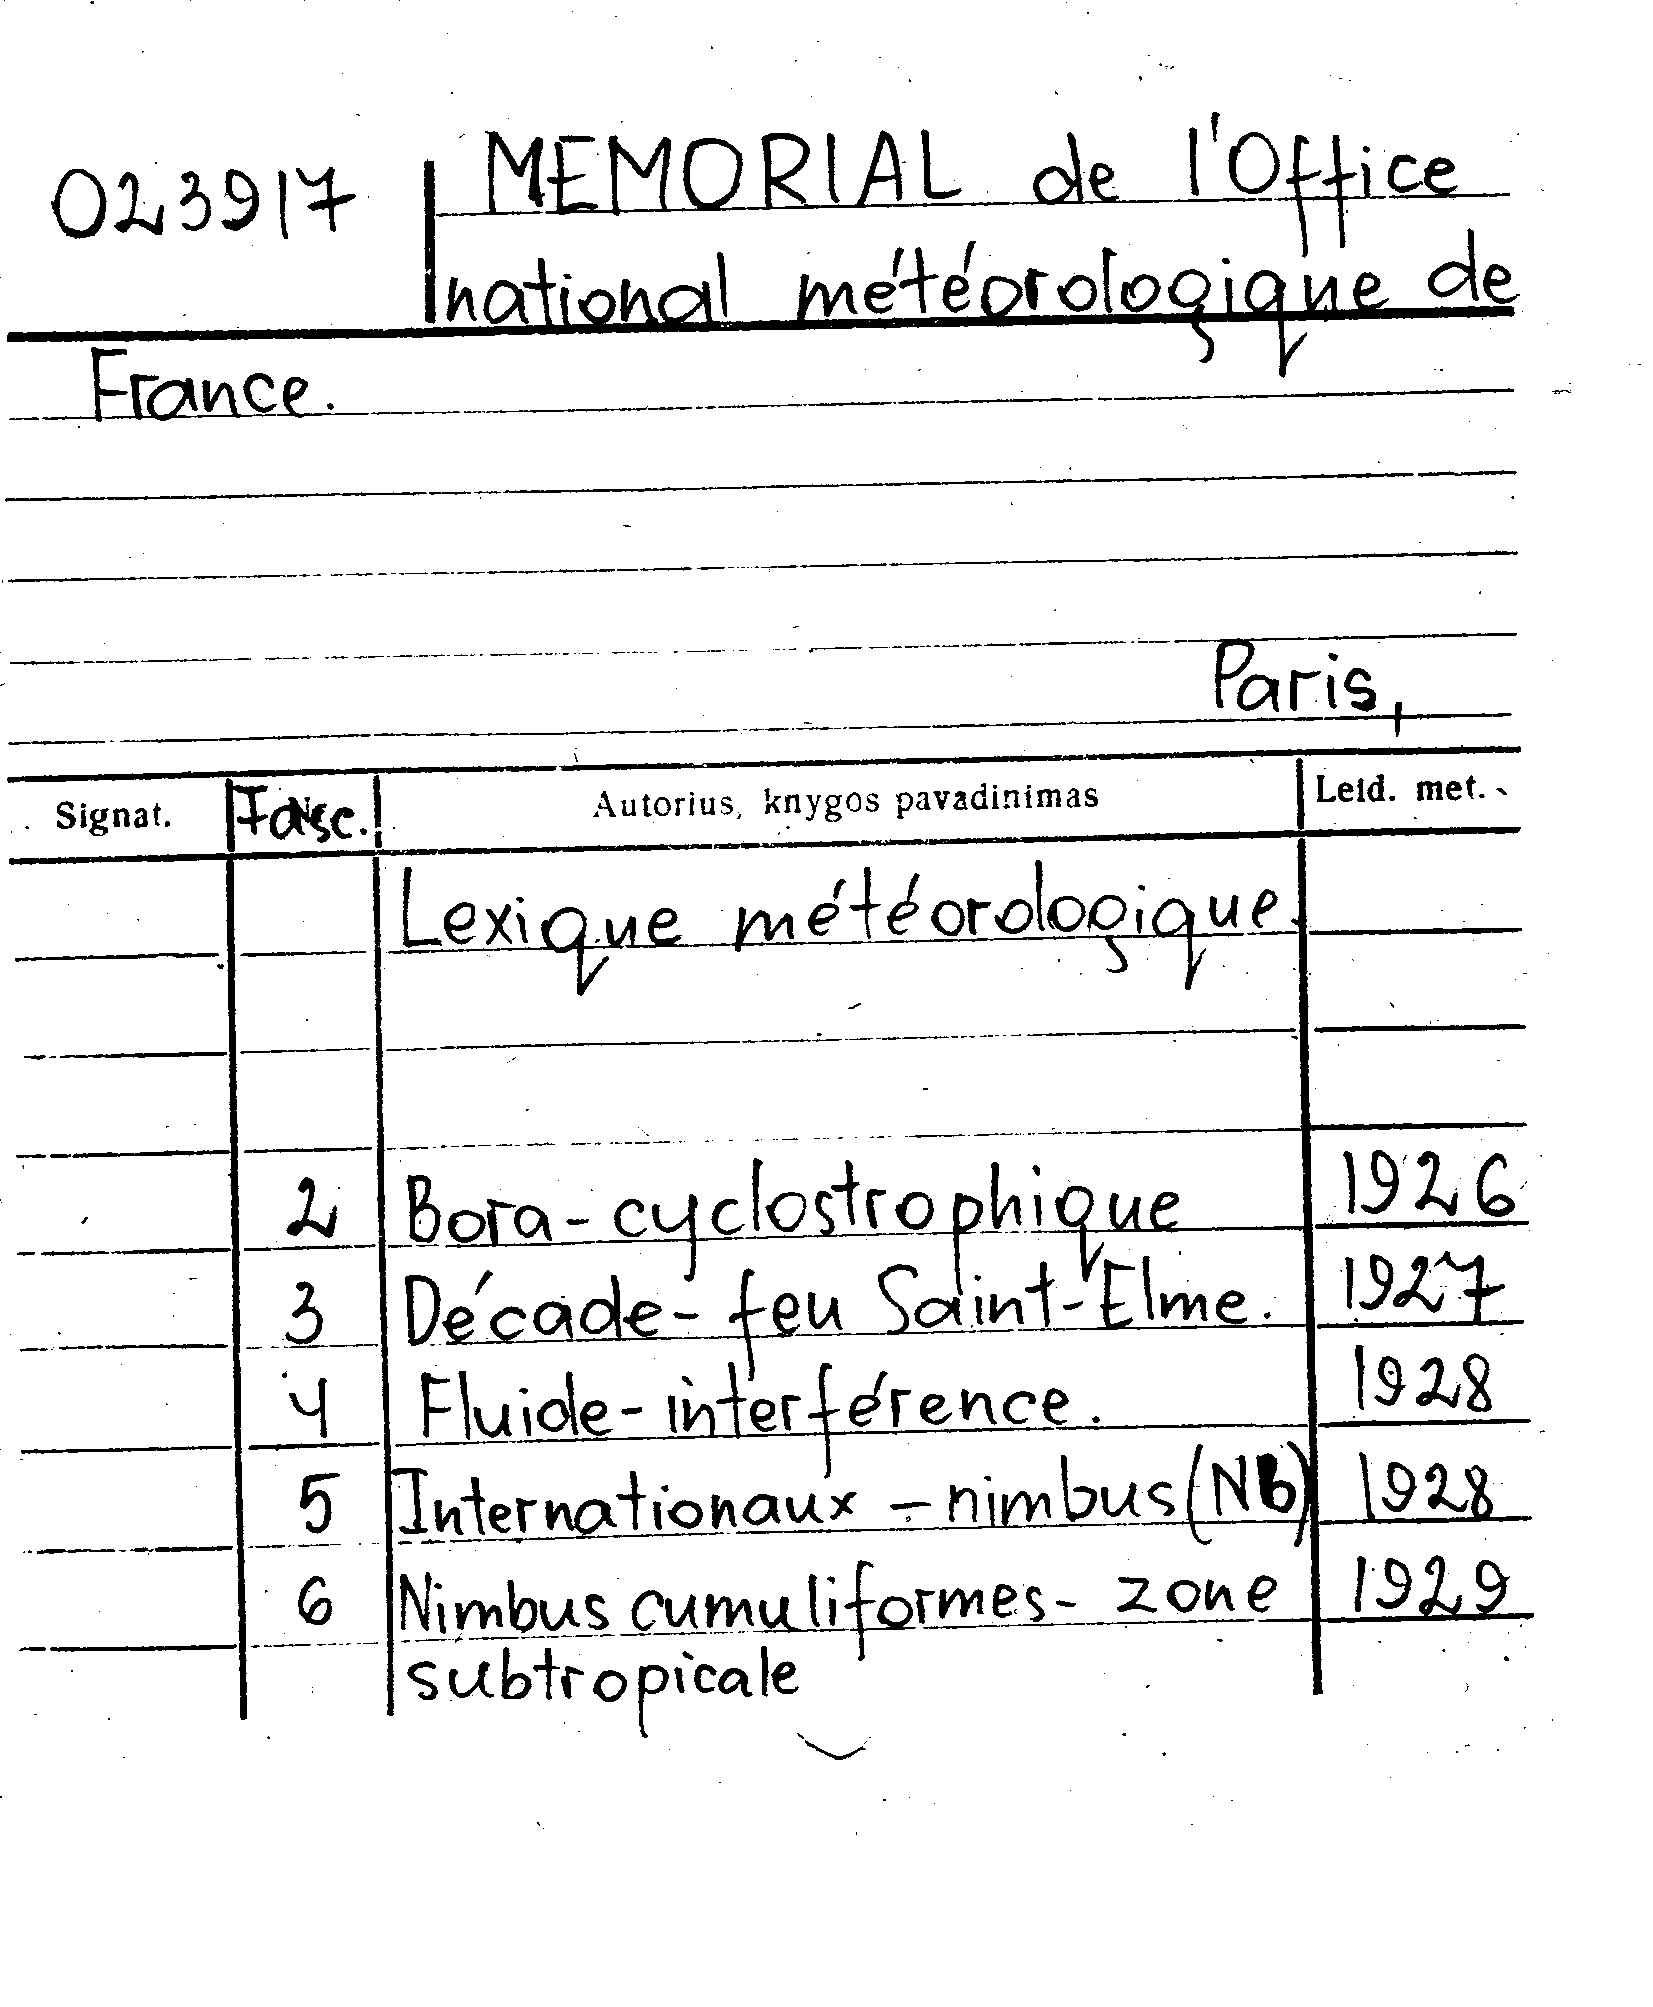 023917 MEMORIAL de l'Office
national météorologique de
France.
Paris,
Signat. Fasc. Autorius, knygos pavadinimas Leid. met.
Lexique météorologique.
2 Bora - cyclostrophique 1926
3 Décade - feu Saint-Elme. 1927
4 Fluide - interférence. 1928
5 Internationaux - nimbus (Nb) 1928
6 Nimbus cumuliformes - zone 1929
subtropicale